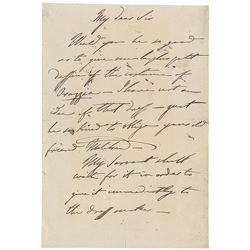 My dear Sir
Would you be so good
as to give me
of the costume of
I have not an
Idea of that dress —
be so kind to your old
friend
My Servant shall
wait for it in order to
give it immediately to
the dress maker —